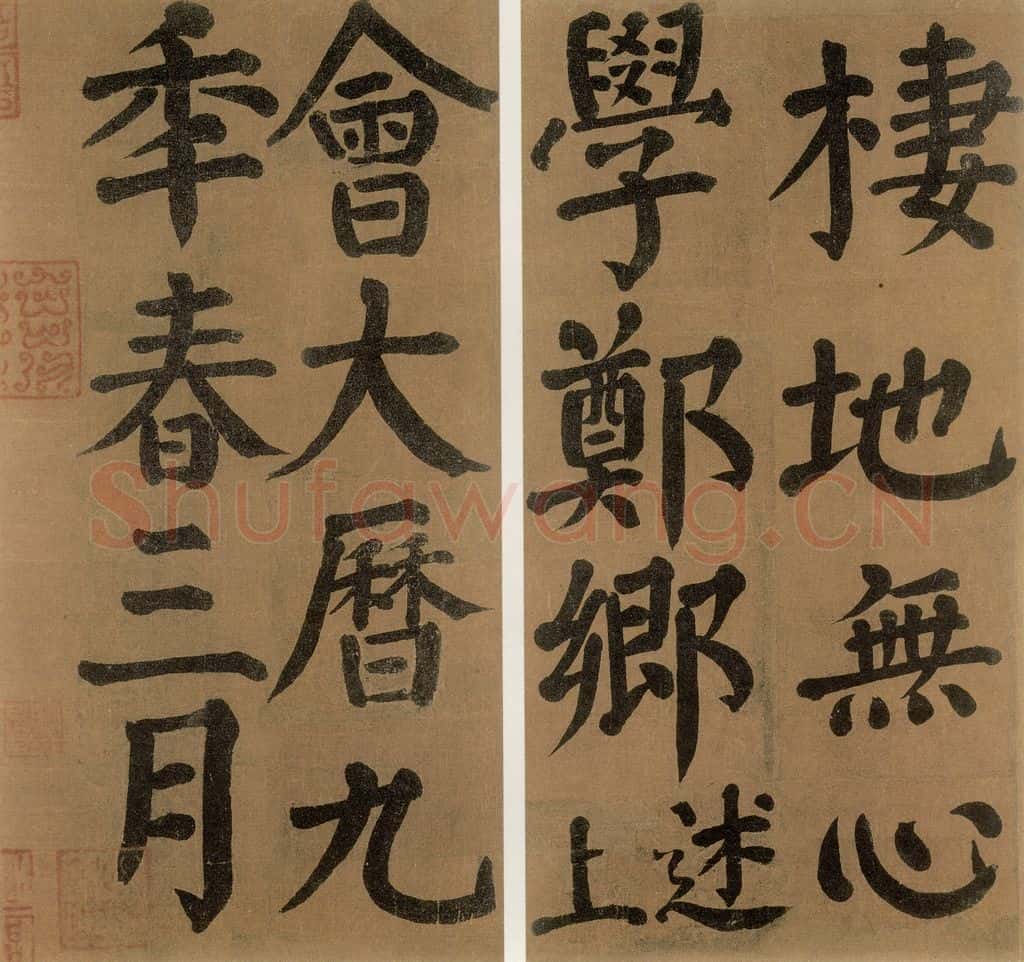 棲地無心
學鄭鄉述上
會大曆九
年春三月
Shufawang.CN